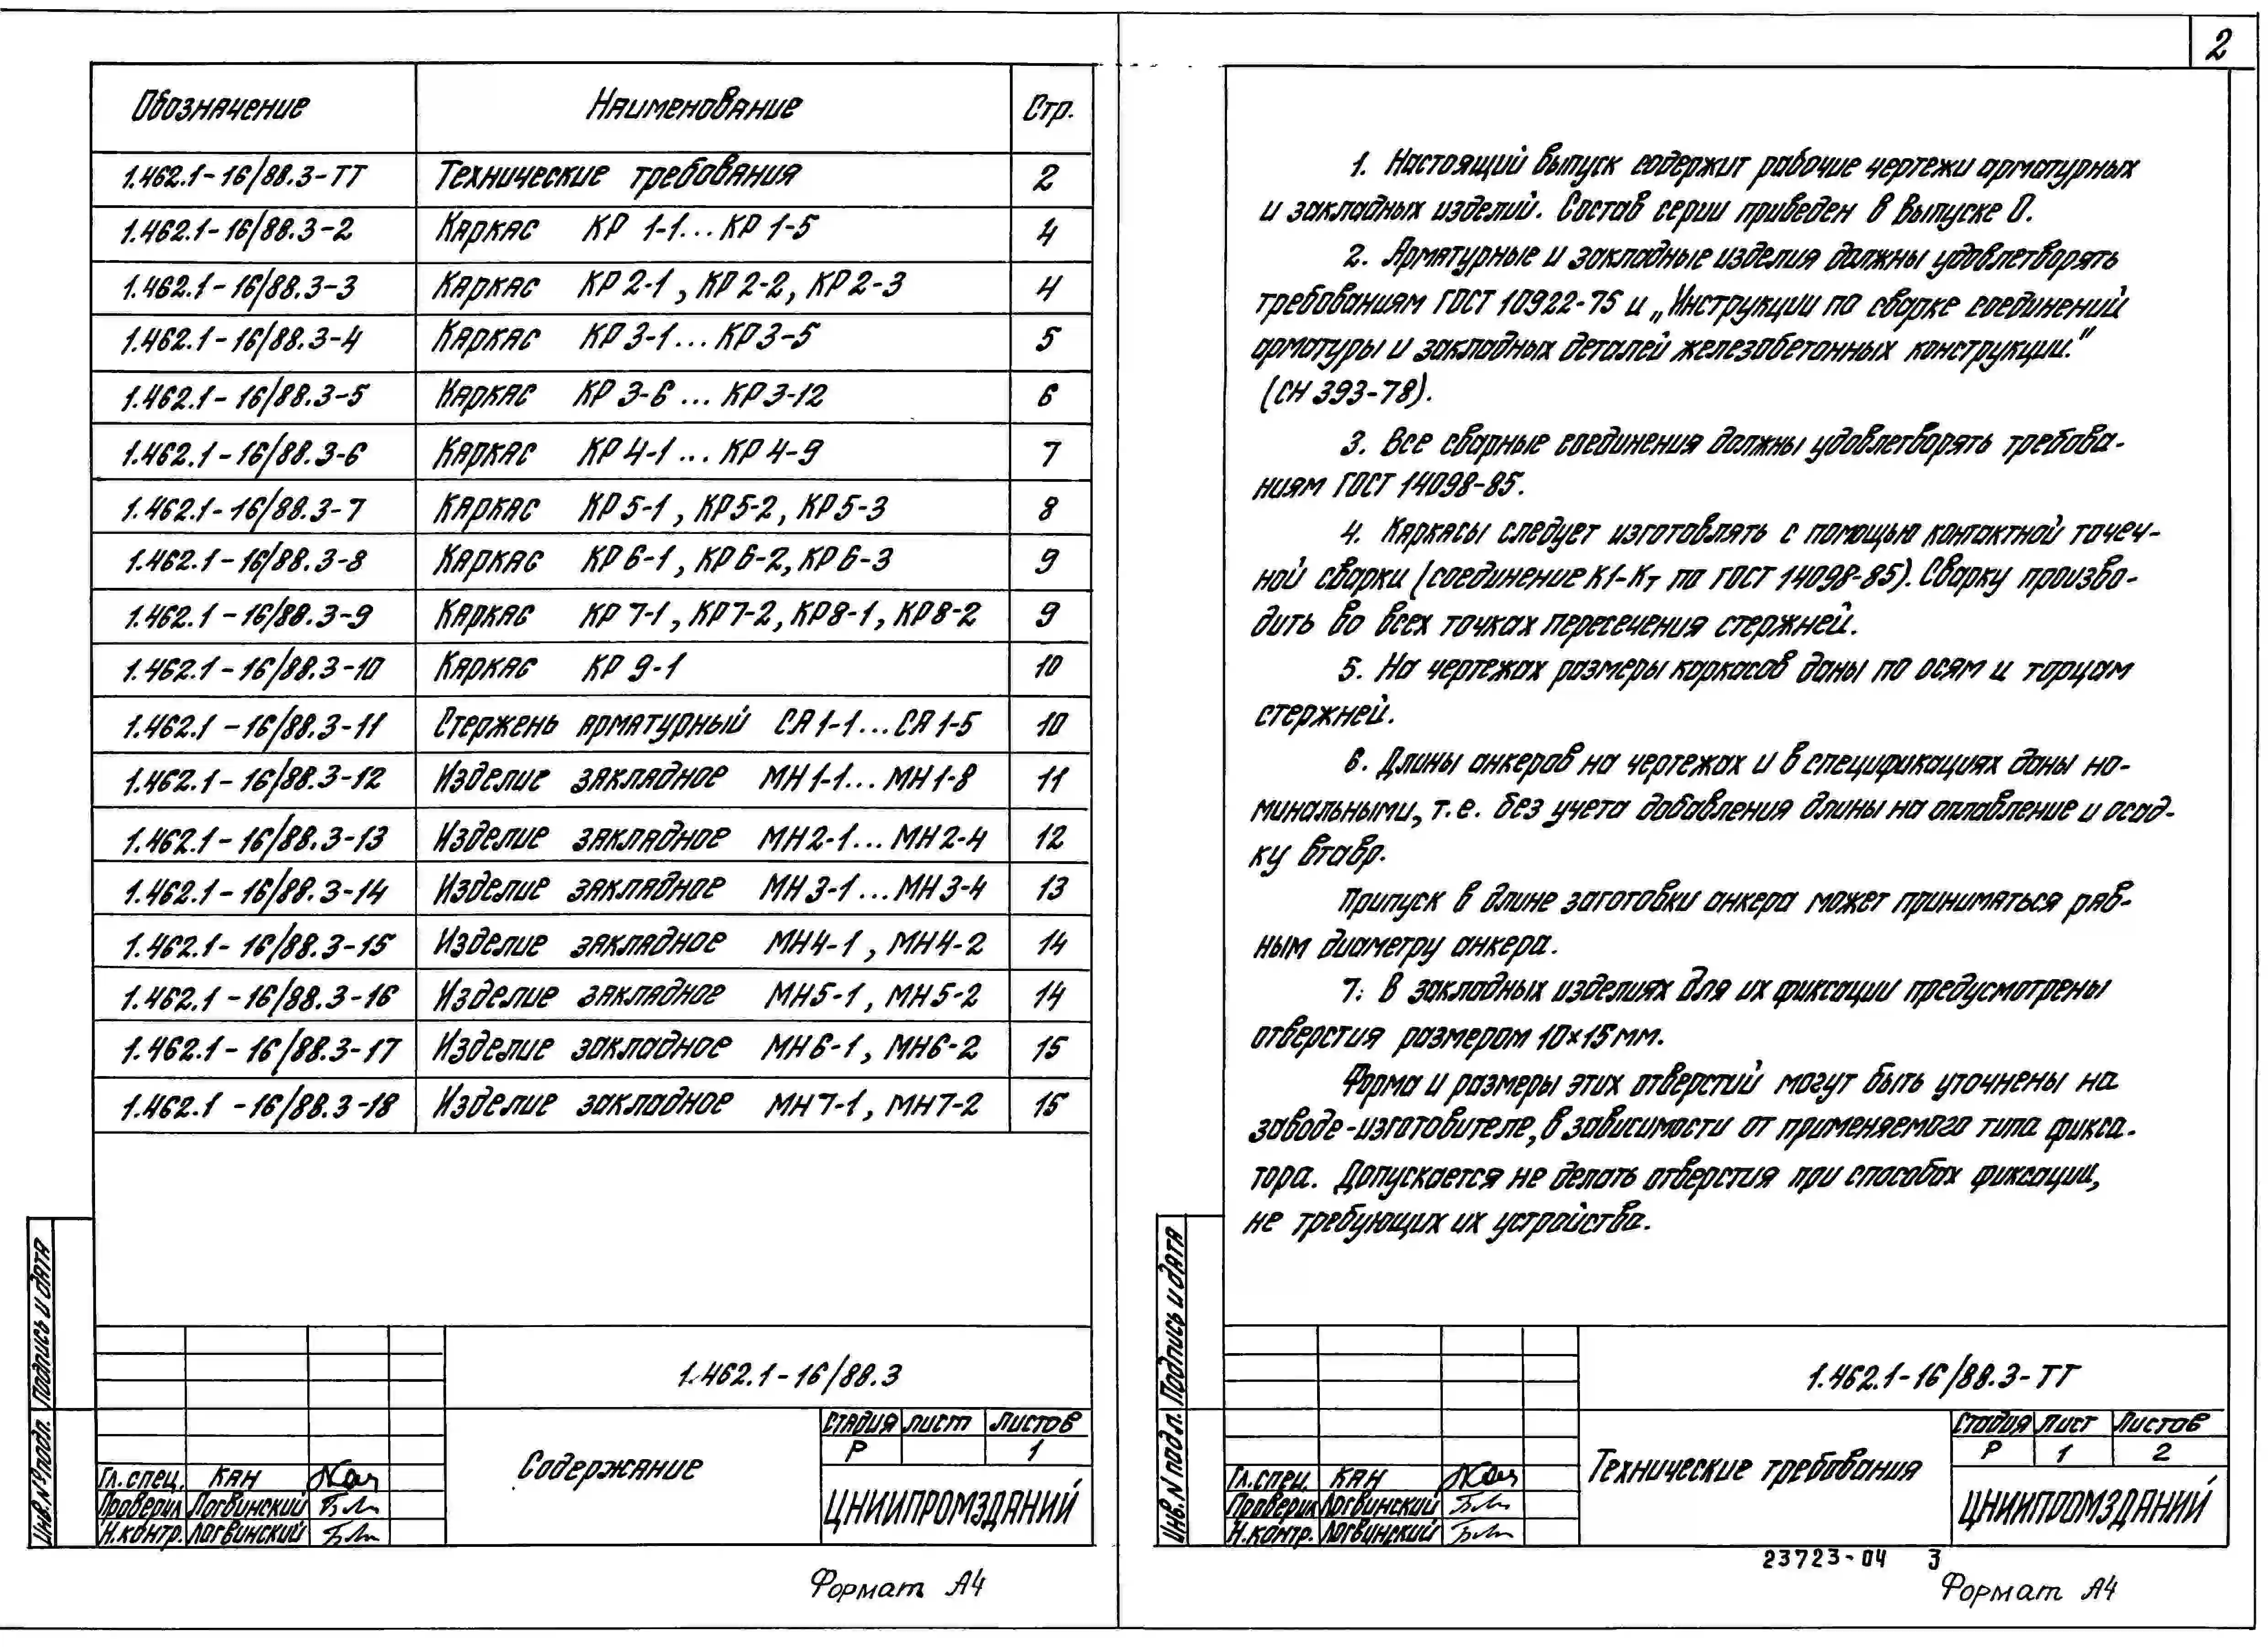 Обозначение Наименование Стр.
1.462.1-16/88.3-ТТ Технические требования 2
1.462.1-16/88.3-2 Каркас КР 1-1...КР 1-5 4
1.462.1-16/88.3-3 Каркас КР 2-1, КР 2-2, КР 2-3 4
1.462.1-16/88.3-4 Каркас КР 3-1...КР 3-5 5
1.462.1-16/88.3-5 Каркас КР 3-6 ... КР 3-12 6
1.462.1-16/88.3-6 Каркас КР 4-1 ... КР 4-9 7
1.462.1-16/88.3-7 Каркас КР 5-1, КР 5-2, КР 5-3 8
1.462.1-16/88.3-8 Каркас КР 6-1, КР 6-2, КР 6-3 9
1.462.1-16/88.3-9 Каркас КР 7-1, КР 7-2, КР 8-1, КР 8-2 9
1.462.1-16/88.3-10 Каркас КР 9-1 10
1.462.1-16/88.3-11 Стержень арматурный СА 1-1...СА 1-5 10
1.462.1-16/88.3-12 Изделие закладное МН 1-1...МН 1-8 11
1.462.1-16/88.3-13 Изделие закладное МН 2-1...МН 2-4 12
1.462.1-16/88.3-14 Изделие закладное МН 3-1...МН 3-4 13
1.462.1-16/88.3-15 Изделие закладное МН 4-1, МН 4-2 14
1.462.1-16/88.3-16 Изделие закладное МН 5-1, МН 5-2 14
1.462.1-16/88.3-17 Изделие закладное МН 6-1, МН 6-2 15
1.462.1-16/88.3-18 Изделие закладное МН 7-1, МН 7-2 15
Инв. № подл. Подпись и дата
1.462.1-16/88.3
Содержание
Стадия Лист Листов
Р 1
ЦНИИПРОМЗДАНИЙ
Гл. спец. Кан
Проверил Логвинский
Н. контр. Логвинский
Формат А4
2
1. Настоящий выпуск содержит рабочие чертежи арматурных
и закладных изделий. Состав серии приведен в выпуске 0.
2. Арматурные и закладные изделия должны удовлетворять
требованиям ГОСТ 10922-75 и „Инструкции по сварке соединений
арматуры и закладных деталей железобетонных конструкции."
(СН 393-78).
3. Все сварные соединения должны удовлетворять требова-
ниям ГОСТ 14098-85.
4. Каркасы следует изготовлять с помощью контактной точеч-
ной сварки (соединение К1-Кт по ГОСТ 14098-85). Сварку произво-
дить во всех точках пересечения стержней.
5. На чертежах размеры каркасов даны по осям и торцам
стержней.
6. Длины анкеров на чертежах и в спецификациях даны но-
минальными, т.е. без учета добавления длины на оплавление и осад-
ку втавр.
Припуск в длине заготовки анкера может приниматься рав-
ным диаметру анкера.
7. В закладных изделиях для их фиксации предусмотрены
отверстия размером 10×15 мм.
Форма и размеры этих отверстий могут быть уточнены на
заводе-изготовителе, в зависимости от применяемого типа фикса-
тора. Допускается не делать отверстия при способах фиксации,
не требующих их устройства.
Инв. N подл. Подпись и дата
1.462.1-16/88.3-ТТ
Технические требования
Стадия Лист Листов
Р 1 2
ЦНИИПРОМЗДАНИЙ
Гл. спец. Кан
Проверил Логвинский
Н. контр. Логвинский
23723-04 3
Формат А4